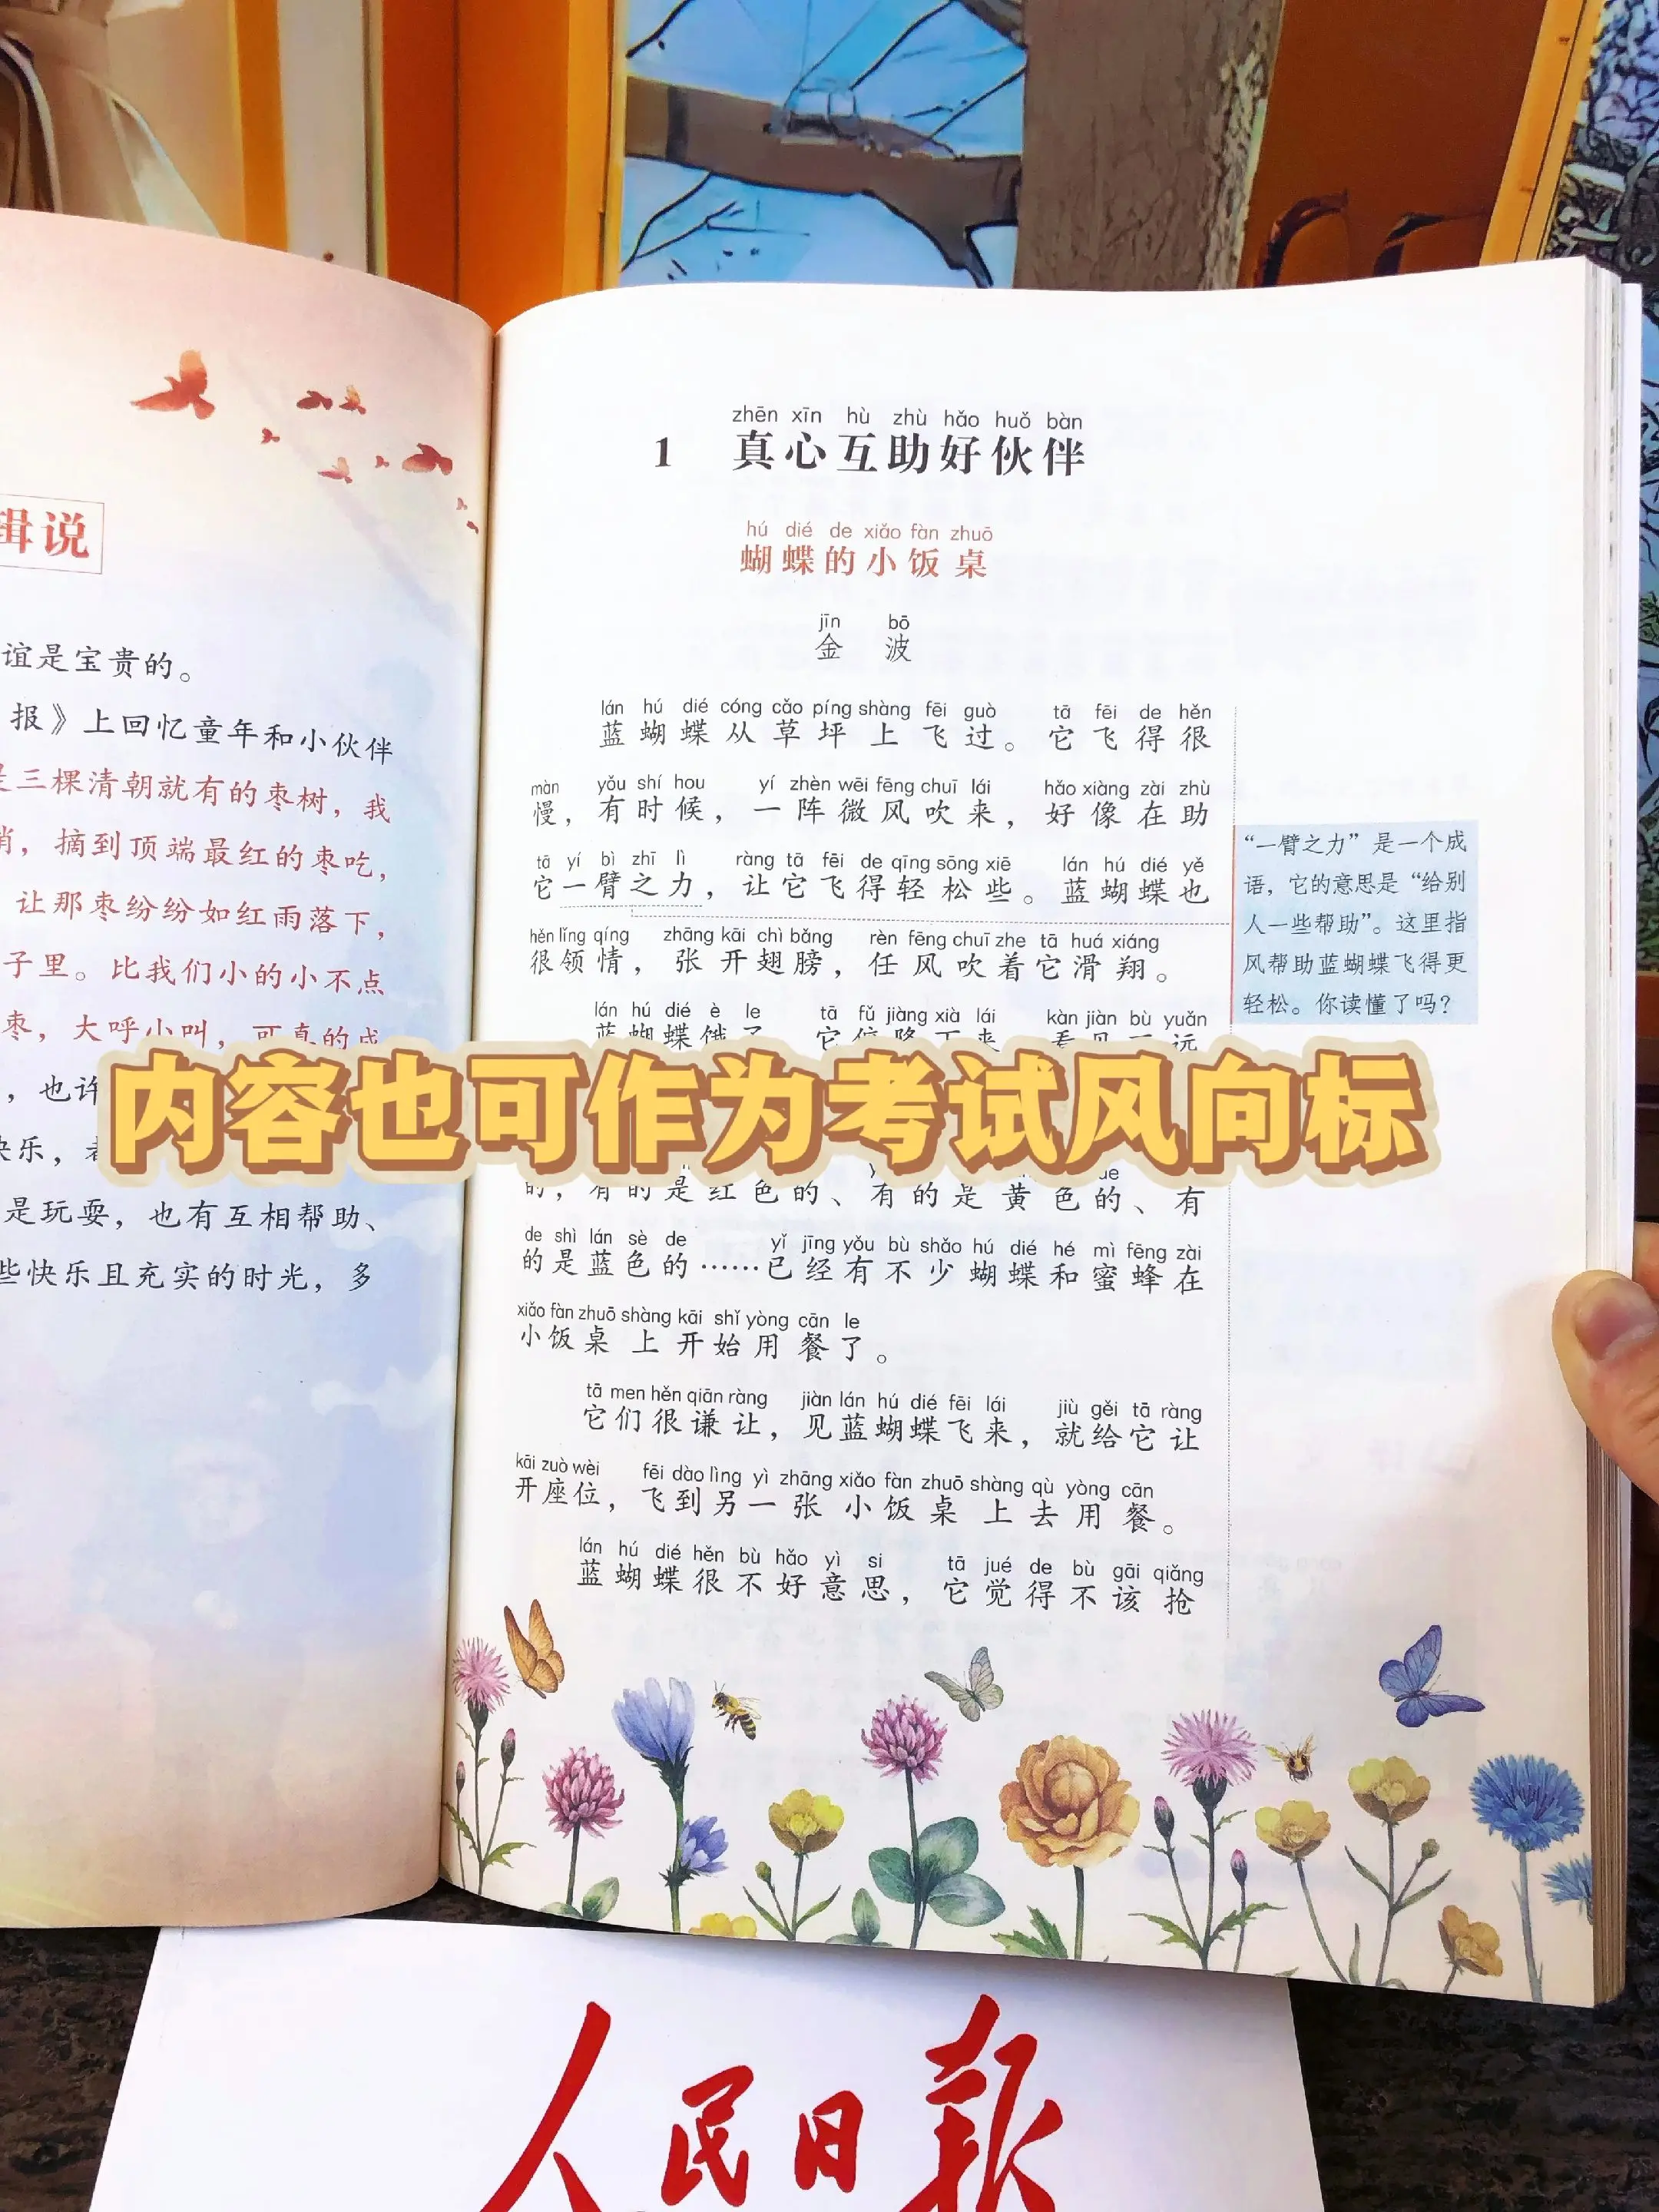 辑说
谊是宝贵的。
报》上回忆童年和小伙伴
是三棵清朝就有的枣树，我
梢，摘到顶端最红的枣吃，
让那枣纷纷如红雨落下，
子里。比我们小的小不点
枣，大呼小叫，可真的成
，也许
快乐，
是玩耍，也有互相帮助、
些快乐且充实的时光，多
zhēn xīn hù zhù hǎo huǒ bàn
1 真心互助好伙伴
hú dié de xiǎo fàn zhuō
蝴蝶的小饭桌
jīn bō
金波
lán hú dié cóng cǎo píng shàng fēi guò tā fēi de hěn
蓝蝴蝶从草坪上飞过。它飞得很
màn yǒu shí hou yí zhèn wēi fēng chuī lái hǎo xiàng zài zhù
慢，有时候，一阵微风吹来，好像在助
tā yí bì zhī lì ràng tā fēi de qīng sōng xiē lán hú dié yě
它一臂之力，让它飞得轻松些。蓝蝴蝶也
hěn lǐng qíng zhāng kāi chì bǎng rèn fēng chuī zhe tā huá xiáng
很领情，张开翅膀，任风吹着它滑翔。
lán hú dié è le tā fǔ jiàng xià lái kàn jiàn bù yuǎn
蓝蝴蝶饿了，它俯降下来，看见不远
内容也可作为考试风向标
的，有的是红色的、有的是黄色的、有
de shì lán sè de yǐ jīng yǒu bù shǎo hú dié hé mì fēng zài
的是蓝色的……已经有不少蝴蝶和蜜蜂在
xiǎo fàn zhuō shàng kāi shǐ yòng cān le
小饭桌上开始用餐了。
tā men hěn qiān ràng jiàn lán hú dié fēi lái jiù gěi tā ràng
它们很谦让，见蓝蝴蝶飞来，就给它让
kāi zuò wèi fēi dào lìng yì zhāng xiǎo fàn zhuō shàng qù yòng cān
开座位，飞到另一张小饭桌上去用餐。
lán hú dié hěn bù hǎo yì si tā jué de bù gāi qiǎng
蓝蝴蝶很不好意思，它觉得不该抢
“一臂之力”是一个成
语，它的意思是“给别
人一些帮助”。这里指
风帮助蓝蝴蝶飞得更
轻松。你读懂了吗？
人民日报